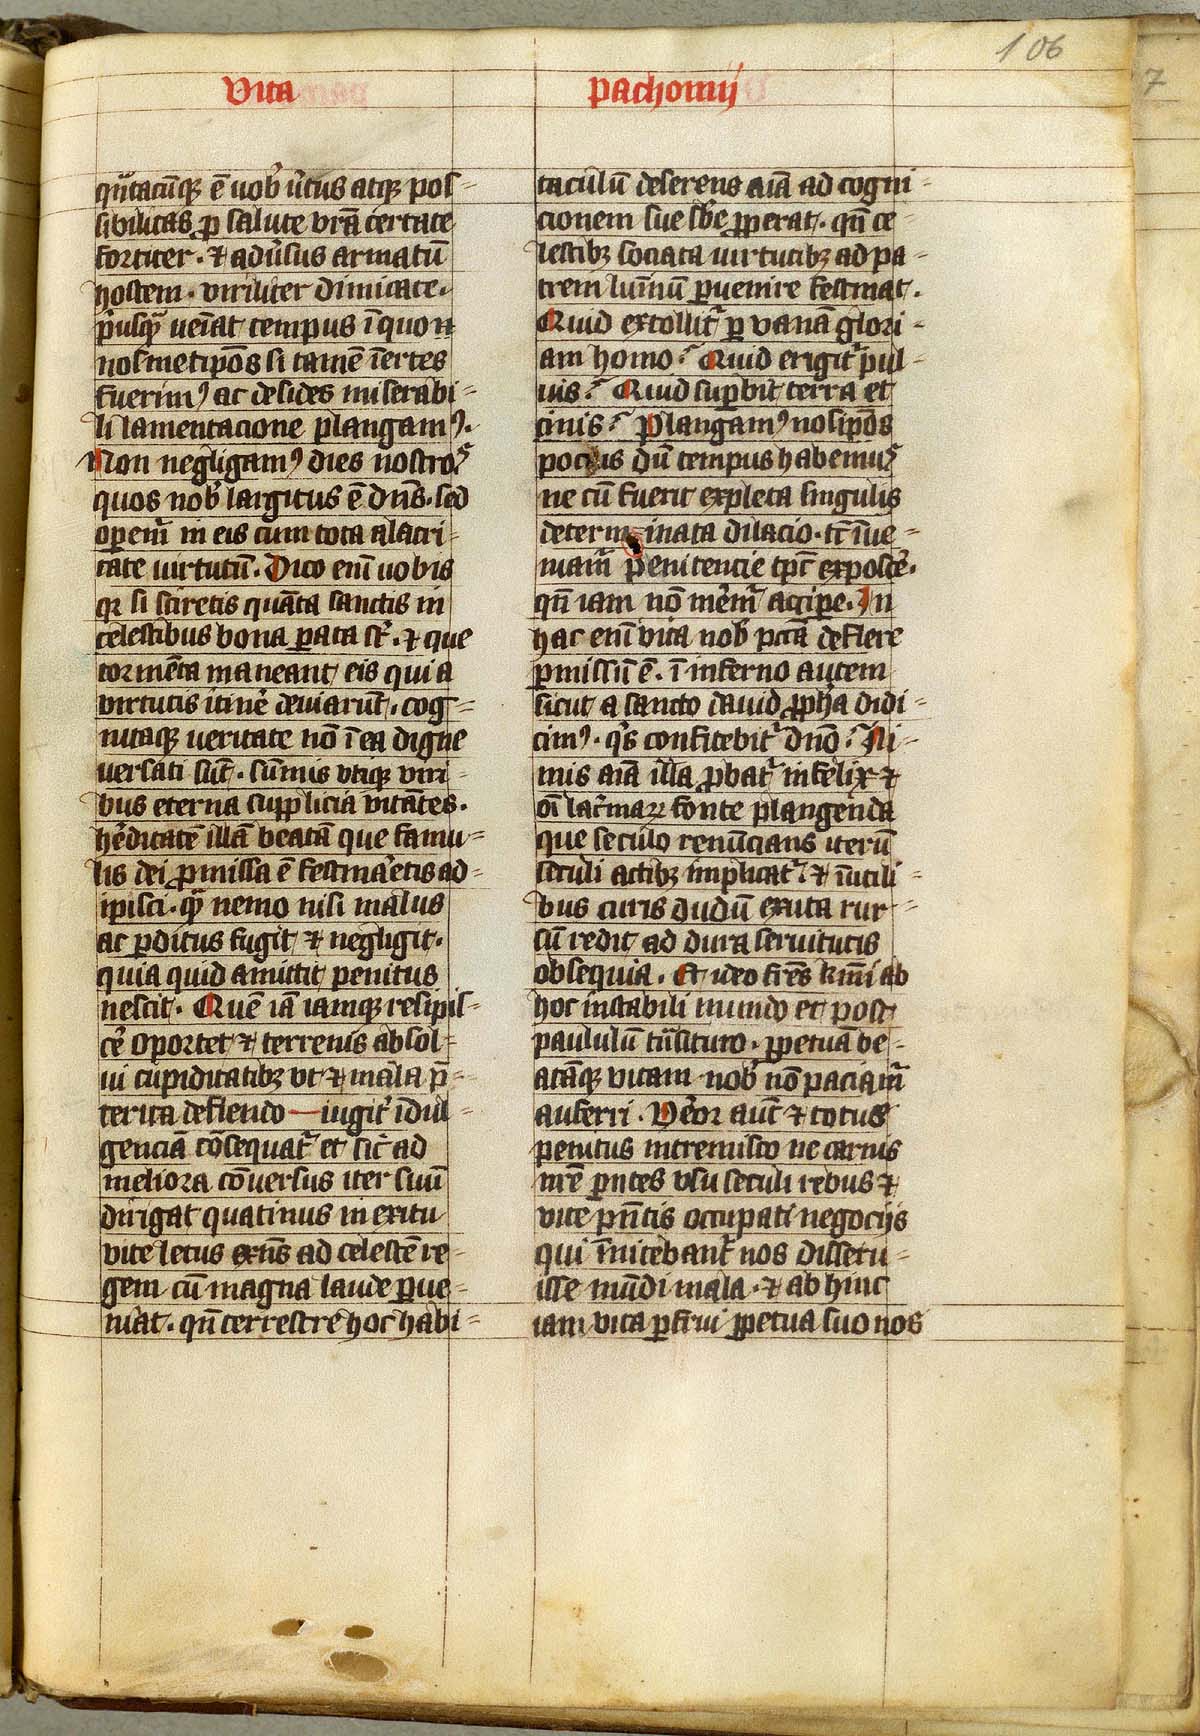 106
7
Vita
pachomij
qͣntacūqꝫ ē uob̾ ũtus atqꝫ pos⸗
sibilitas ꝓ salute vr̄a certate
fortiter · ⁊ adũsus armatū
hostem · viriliter dimicate ·
p̾usqͣ ueīat tempus ī quo n
nosmetip̄os si tamē īertes
fuerimꝰ ac desides miserabi⸗
li lamentacione plangamꝰ ·
Non negligamꝰ dies nostroꝝ
quos nob̾ largitus ē dn̄s · sed
oꝑemͬ in eis cum tota alacri⸗
tate uirtutū · Dico em̄ uobis
qꝛ si sciretis quāta sanctis in
celestibus bona ꝑata st̄ · ⁊ que
tormēta maneant eis qui a
virtutis itiñe deuiarūt · cog⸗
nitaqꝫ ueritate nō ī ea digne
uersati sūt · sūmis vtiqꝫ viri⸗
bus eterna supplicia vitātes ·
h̾editatē illā beatā que famu⸗
lis dei ꝓmissa ē festina̾etis ad⸗
ipisci · qͣ nemo nisi malus
ac ꝑditus fugit ⁊ negligit ·
quia quid amittit penitus
nescit · Quē iā iamqꝫ resipis⸗
ce̾ oportet ⁊ terrenis absol⸗
ui cupiditatibꝫ vt ⁊ mala p̄⸗
terita deflendo — iugitͬ īdul⸗
genciā cōsequatͬ et sic̾ ad
meliora cōuersus iter suū
dirigat quatinus in exitu
vite letus extn̄s ad celestē re⸗
gem cū magna laude ꝑue⸗
niat · qn̄ terrestre hoc habi⸗
taculū deserens aīa ad cogni⸗
cionem sue sb̄e ꝓꝑat · qn̄ ce⸗
lestibꝫ sociata uirtutibꝫ ad pa⸗
trem lumīnū ꝑuenire festinat ·
Quid extollitͬ ꝑ vanā glori⸗
am homo ? Quid erigitͬ pul⸗
uis ? Quid suꝑbit terra et
cinis ? Plangamꝰ nosip̄os
pocius dū tempus habemus
ne cū fuerit expleta singulis
determinata dilacio · tc̄ īue⸗
niamͬ penitencie tp̄c exposce̾ ·
qn̄ iam nō me̾mͬ accipe · In
hac em̄ vita nob̾ pctā deflere
ꝑmissū ē · ī inferno autem
sicut a sancto dauid ꝓph̄a didi⸗
cimꝰ · qͥs confitebitͬ dn̄o ? Ni⸗
mis aīa illa ꝓbatͬ infelix ⁊
oī lac̾maꝝ fonte plangenda
que seculo renūcians iterū
seculi actibꝫ implicatͬ · ⁊ īutili⸗
bus curis dudū exuta rur⸗
sū redit ad dura seruitutis
obsequia · Et ideo fr̄es kmī ab
hoc instabili mundo et post
paululū tͣnsituro · ꝑpetuā be⸗
atāqꝫ vitam nob̾ nō paciamͬ
auferri · Ve̾or aut̄ ⁊ totus
penitus intremisco ne carnis
nr̄e ꝑntes vsu seculi rebus ⁊
vite p̄ntis occupati negocijs
qui īnitebantͬ nos disseru⸗
isse mūdi mala · ⁊ ab hinc
iam vita ꝑfrui ꝑpetua suo nos